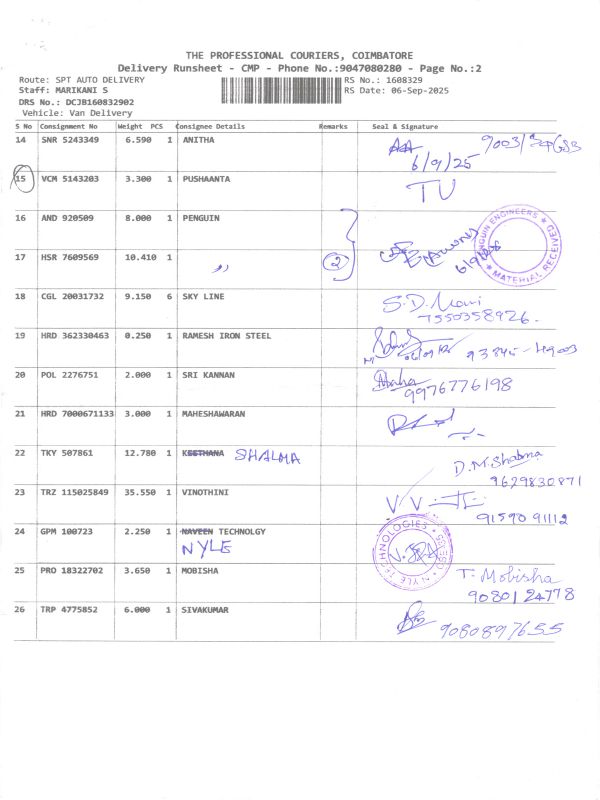 THE PROFESSIONAL COURIERS, COIMBATORE
Delivery Runsheet - CMP - Phone No.:9047080280 - Page No.:2
Route: SPT AUTO DELIVERY RS No.: 1608329
Staff: MARIKANI S RS Date: 06-Sep-2025
DRS No.: DCJB160832902
Vehicle: Van Delivery
S No Consignment No Weight PCS Consignee Details Remarks Seal & Signature
14 SNR 5243349 6.590 1 ANITHA
6/9/25
15 VCM 5143203 3.300 1 PUSHAANTA TU
16 AND 920509 8.000 1 PENGUIN
PENGUIN ENGINEERS ★ MATERIAL RECEIVED ★
17 HSR 7609569 10.410 1 ,, 2
18 CGL 20031732 9.150 6 SKY LINE S.D. Mani
7550358926.
19 HRD 362330463 0.250 1 RAMESH IRON STEEL
20 POL 2276751 2.000 1 SRI KANNAN Maha
9976776198
21 HRD 7000671133 3.000 1 MAHESHAWARAN
22 TKY 507861 12.780 1 KEETHANA SHALMA D.M.Shabma
9629830871
23 TRZ 115025849 35.550 1 VINOTHINI
91590 91112
24 GPM 100723 2.250 1 NAVEEN TECHNOLGY
NYLE
NYLE TECHNOLOGIES
25 PRO 18322702 3.650 1 MOBISHA T. Mobisha
9080124778
26 TRP 4775852 6.000 1 SIVAKUMAR
9080897655